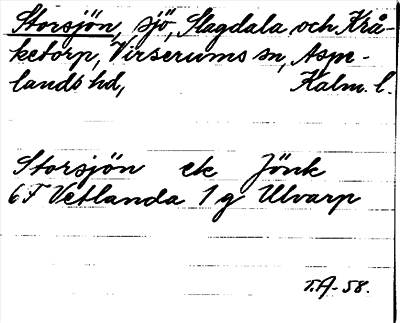 Storsjön, sjö, Slagdala och Krå-
ketorp, Virserums sn, Asp-
lands hd, Kalm. l.
Storsjön ek Jönk
6F Vetlanda 1g Ulvarp
T.A-58.